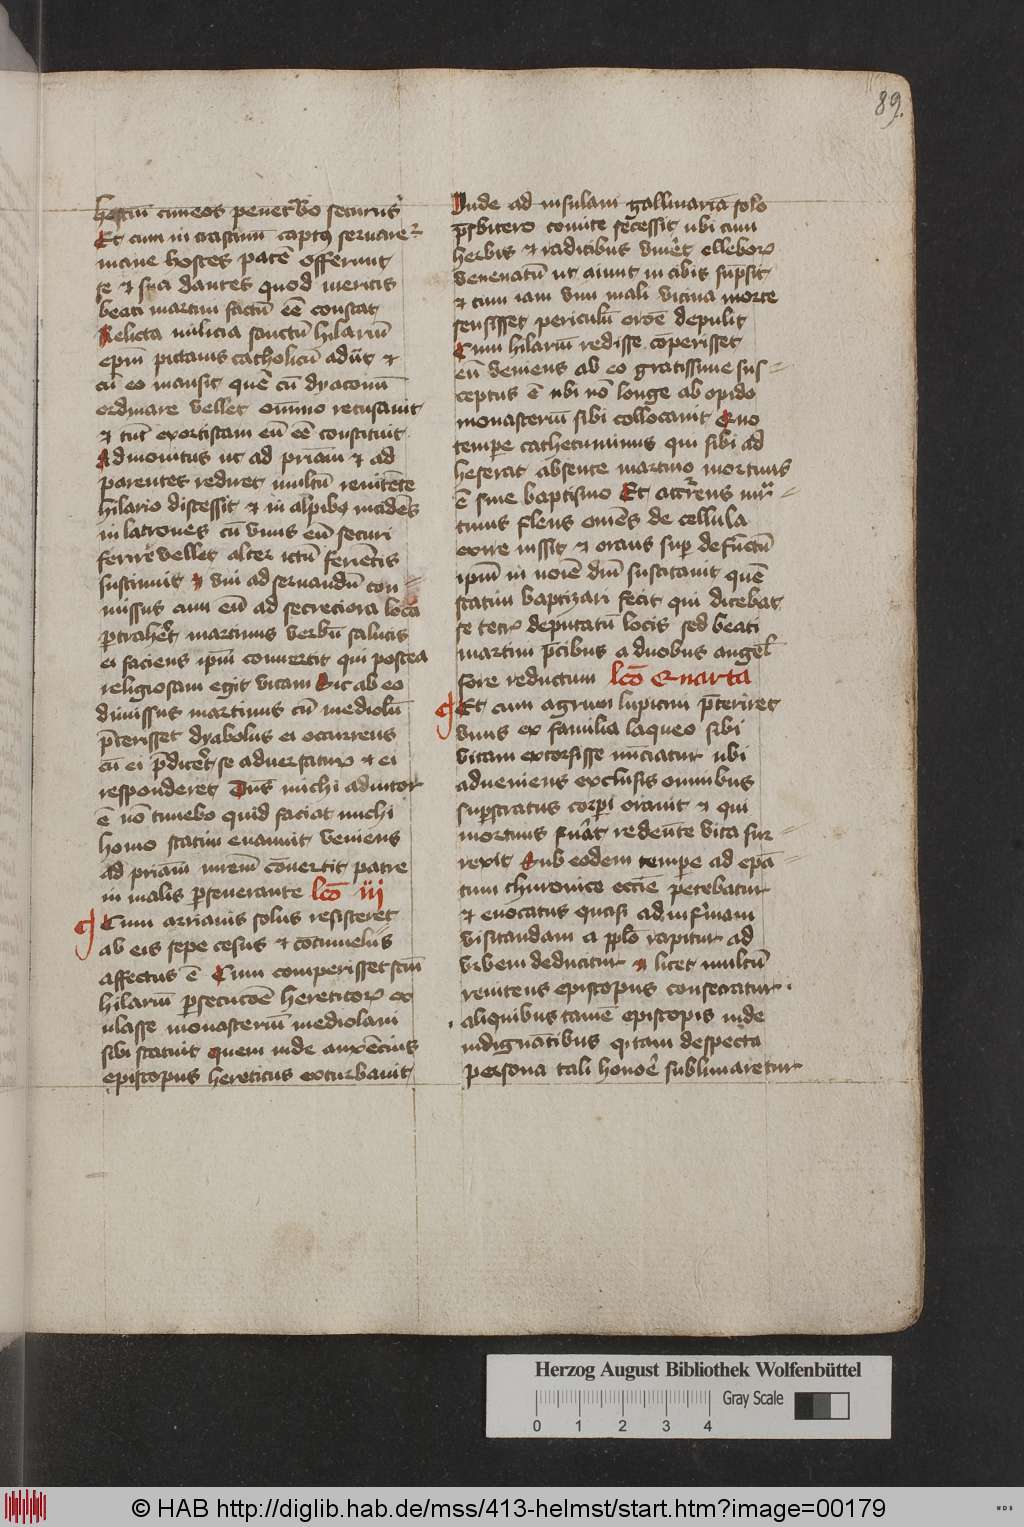 89.
hostiū cuneos penetrabo securus
Et cum in crastinū captꝰ seruaret᷑
mane hostes pacē offerunt
se ⁊ sua dantes quod meritis
beati martini factū eē constat
Relicta milicia sanctū hilariū
epm̄ pictauis catholicū adijt ⁊
cū eo mansit quē cū dyaconū
ordinare vellet omīno recusauit
⁊ tūc exorcistam eū eē constituit
Admonitus ut ad priam ⁊ ad
parentes rediret multū renitēte
hilario discessit ⁊ in alpibꝰ incidēs
in latrones cū vnus eū securi
ferire vellet alter ictū feriētis
sustinuit ⁊ vni ad seruandū con-
missus cum eū ad secretiora loca
ꝑtraheret martinus verbū salutis
ei faciens ipm̄ conuertit qui postea
religiosam egit vitam Sic ab eo
dimissus martinus cū mediolū
p̄terisset dyabolus ei occurrens
cū ei p̄diceret se aduersaturū ⁊ ei
responderet Dn̄s michi adiutor
ē nō timebo quid faciat michi
homo statim euanuit veniens
ad priam mrēm cōuertit patre
in malis ꝑseuerante lc̄o iij
Cum arrianis solus resisteret
ab eis sepe cesus ⁊ cōtumeliis
affectus ē Cum comperisset scm̄
hilariū ꝑsecucōe hereticoꝝ ex
ulasse monasteriū mediolani
sibi statuit quem inde auxēcius
episcopus hereticus exturbauit
Inde ad insulam gallinariā solo
p̄sbitero comite secessit ubi cum
herbis ⁊ radicibus viueret elleboꝝ
venenatū ut aiunt in cibis sūpsit
⁊ cum iam vim mali vicina morte
sensisset periculū orōe depulit
Cum hilariū redisse coperisset
eū veniens ab eo gratissime sus-
ceptus ē ubi nō longe ab opido
monasteriū sibi collocauit Quo
tempe cathecuminus qui sibi ad
heserat absente martino mortuus
ē sine baptismo Et accurrens mar-
tinus flens omēs de cellula
exire iussit ⁊ orans suꝑ defūctū
ipm̄ in noīe dn̄i suscitauit quē
statim baptizari fecit qui dicebat
se tetꝝ deputatū locis sed beati
martini p̄cibus a duobus angel̄
fore reductum lc̄o Quarta
Et cum agrum lupicini p̄teriret
vnus ex familia laqueo sibi
vitam extorsisse nūciatur ubi
adueniens exclusis omnibus
suꝑstratus corpi orauit ⁊ qui
mortuus fuerat redeūte vita sur-
rexit Sub eodem tempe ad epā-
tum thuronice ecc̄ie petebatur
⁊ euocatus quasi ad infirmam
visitandam a pplo rapitur ad
vrbem deducitur ⁊ licet multū
renitens episcopus consecratur.
aliquibus tamē episcopis inde
indignātibus qꝫ tam despecta
persona tali honore sublimaretur
Herzog August Bibliothek Wolfenbüttel
0 1 2 3 4
Gray Scale
© HAB http://diglib.hab.de/mss/413-helmst/start.htm?image=00179
WDB